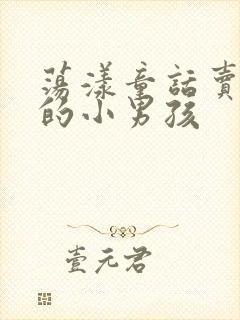 蕩漾童話賣
的小男孩
壹元君